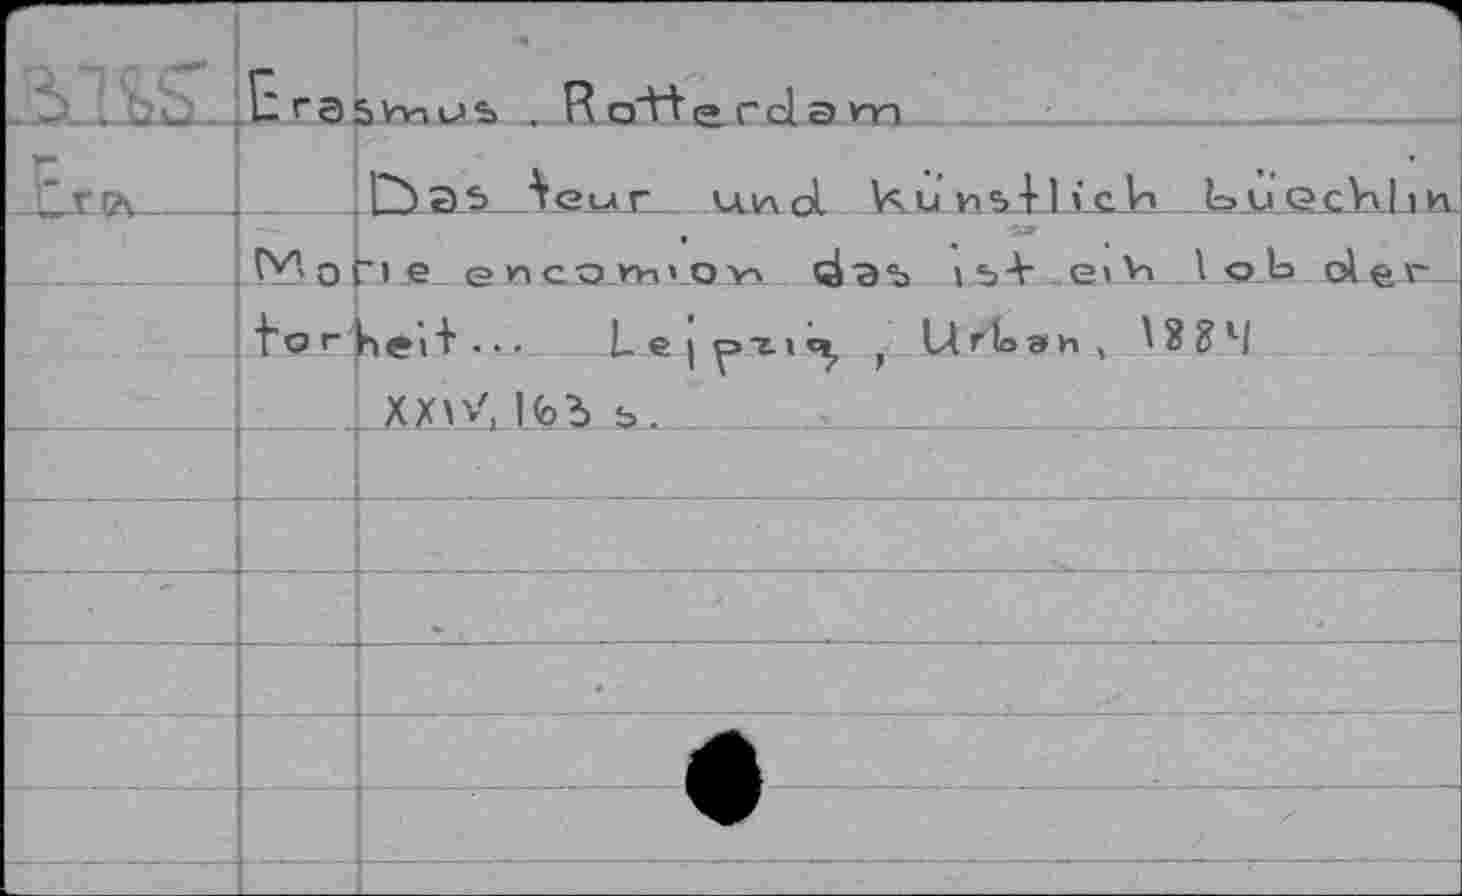 B785 Erasmus . Rotterdam
Era Das teur und künstlich büechlin
Morie encomion das ist eih lob der
torheit... Leipzig, Urban, 1884
XXIV, 163 s.